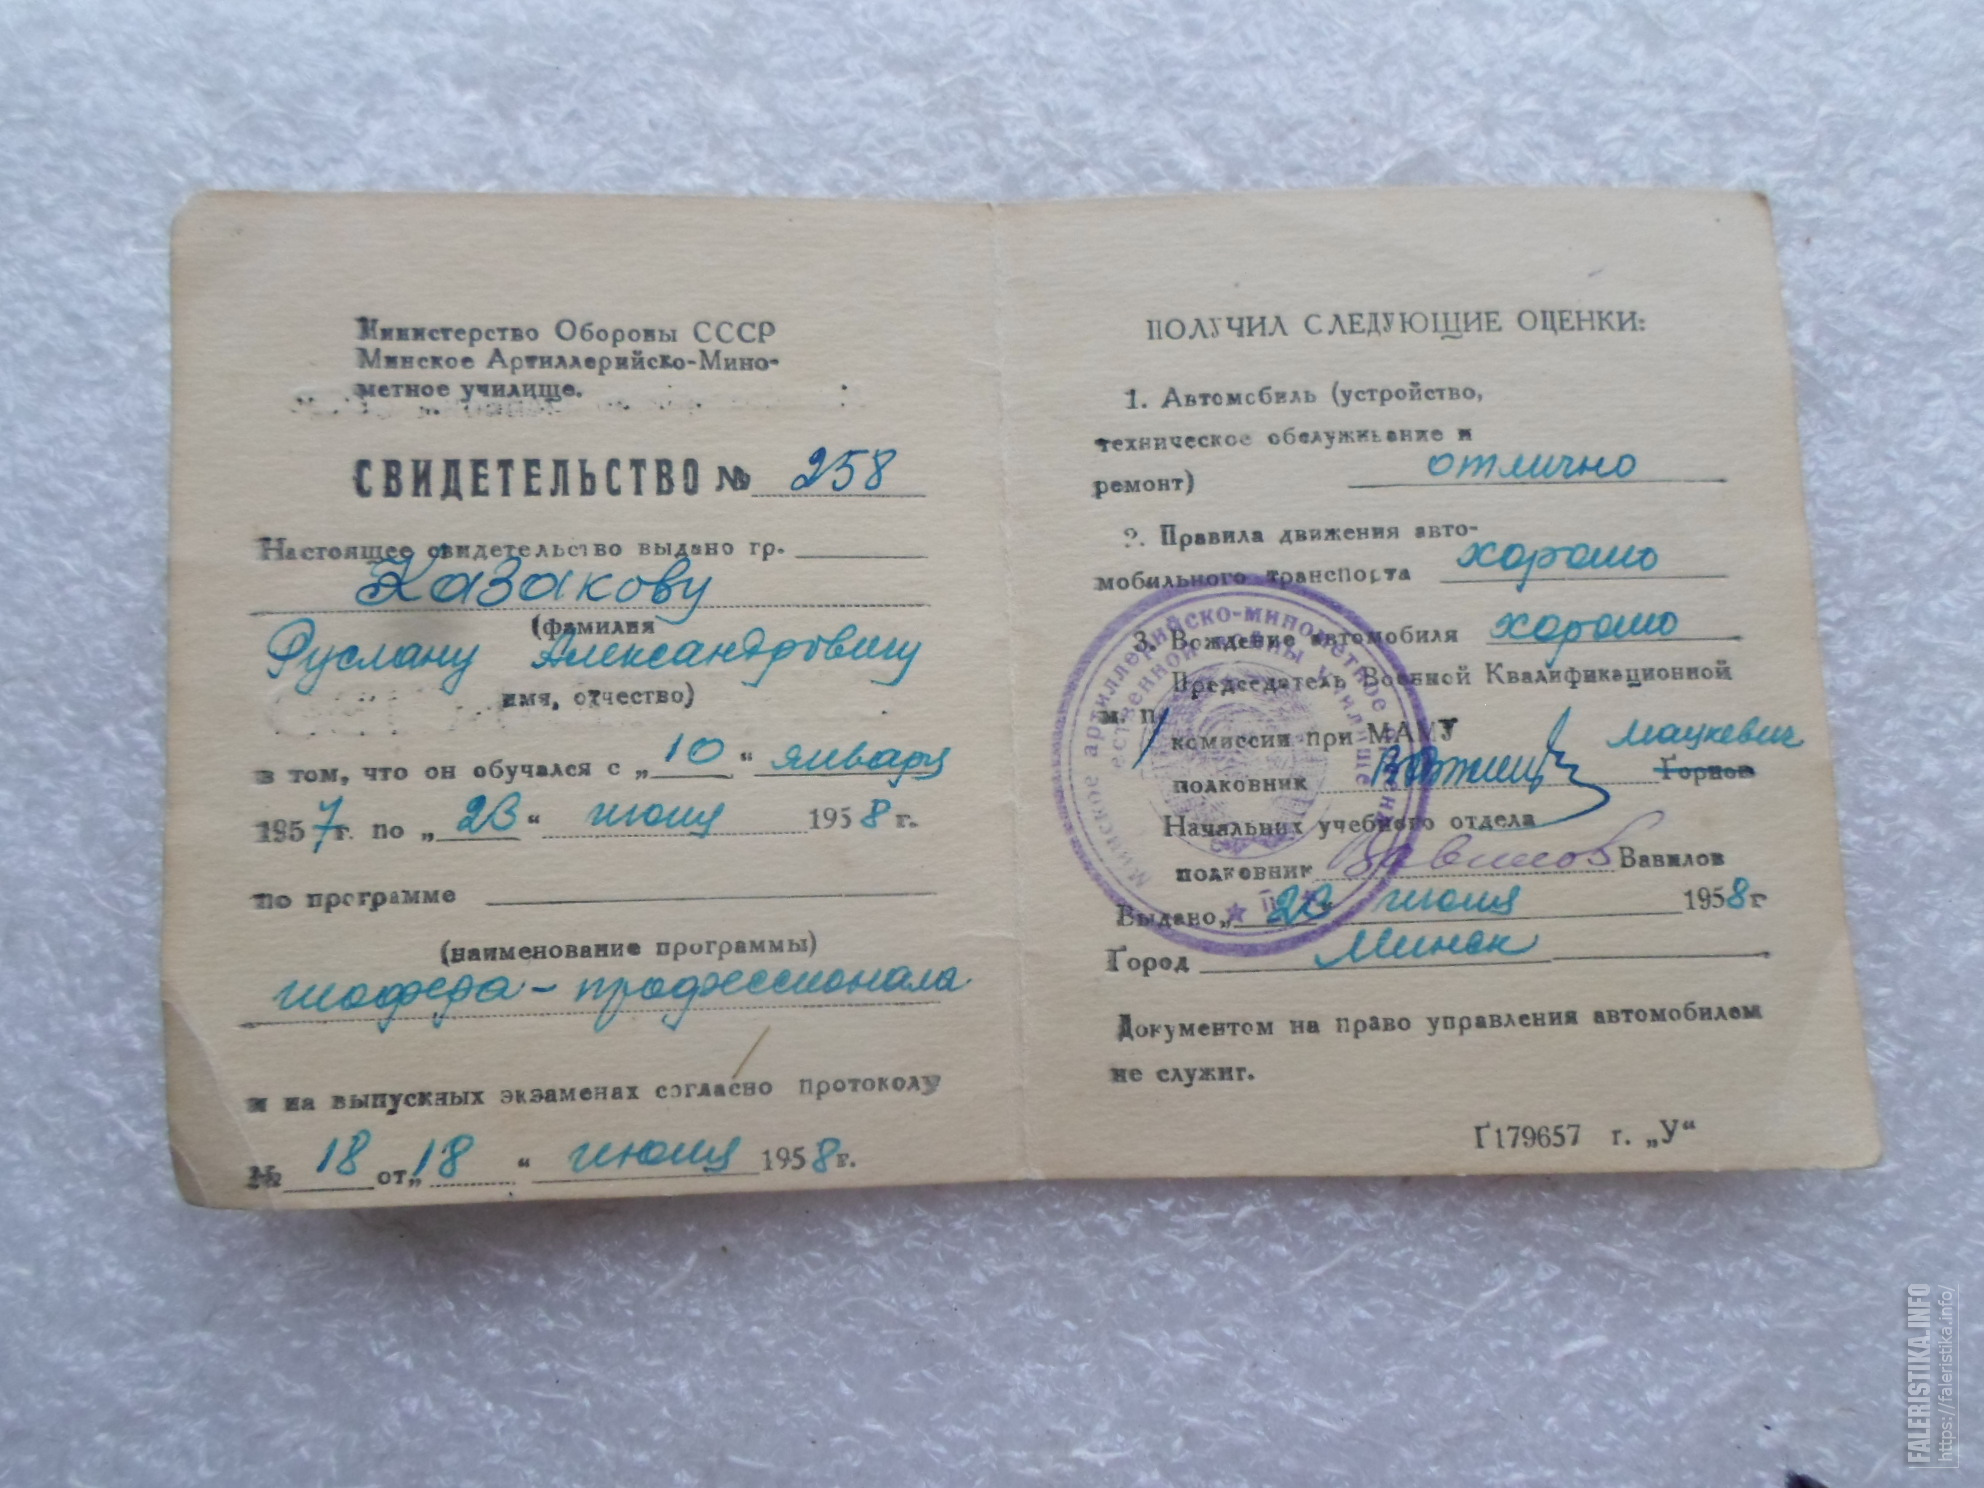 Министерство Обороны СССР
Минское Артиллерийско-Мино-
метное училище.
СВИДЕТЕЛЬСТВО № 258
Настоящее свидетельство выдано гр.
Казакову
(фамилия
Руслану Александровичу
имя, отчество)
в том, что он обучался с „10“ января
1957 г. по „23“ июля 1958 г.
по программе
(наименование программы)
шофера - профессионала
и на выпускных экзаменах согласно протоколу
№ 18 от „18“ июля 1958 г.
ПОЛУЧИЛ СЛЕДУЮЩИЕ ОЦЕНКИ:
1. Автомобиль (устройство,
техническое обслуживание и
ремонт) отлично
2. Правила движения авто-
мобильного транспорта хорошо
3. Вождение автомобиля хорошо
Председатель Военной Квалификационной
м. п.
комиссии при МАМУ Мацкевич
полковник Горнов
Начальник учебного отдела
полковник Вавилов Вавилов
Выдано „23“ июля 1958 г
Город Минск
Документом на право управления автомобилем
не служит.
Г179657 г. „У“
Минское артиллерийско-минометное
FALERISTIKA.INFO
https://faleristika.info/